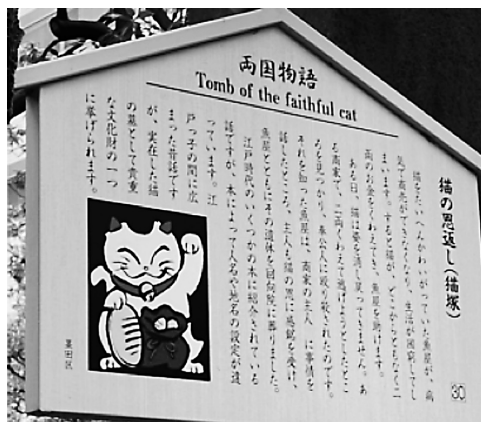 両国物語
Tomb of the faithful cat
猫の恩返し(猫塚)
猫をたいへんかわいがっていた魚屋が、病
気で商売ができなくなり、生活が困窮してし
まいます。すると猫が、どこからともなく二
両のお金をくわえてき、魚屋を助けます。
ある日、猫は姿を消し戻ってきません。あ
る商家で、二両くわえて逃げようとしたとこ
ろを見つかり、奉公人に殴り殺されたのです。
それを知った魚屋は、商家の主人に事情を
話したところ、主人も猫の恩に感銘を受け、
魚屋とともにその遺体を回向院に葬りました。
江戸時代のいくつかの本に紹介されている
話ですが、本によって人名や地名の設定が違
っています。江
戸っ子の間に広
まった昔話です
が、実在した猫
の墓として貴重
な文化財の一つ
に挙げられます。
墨田区
30